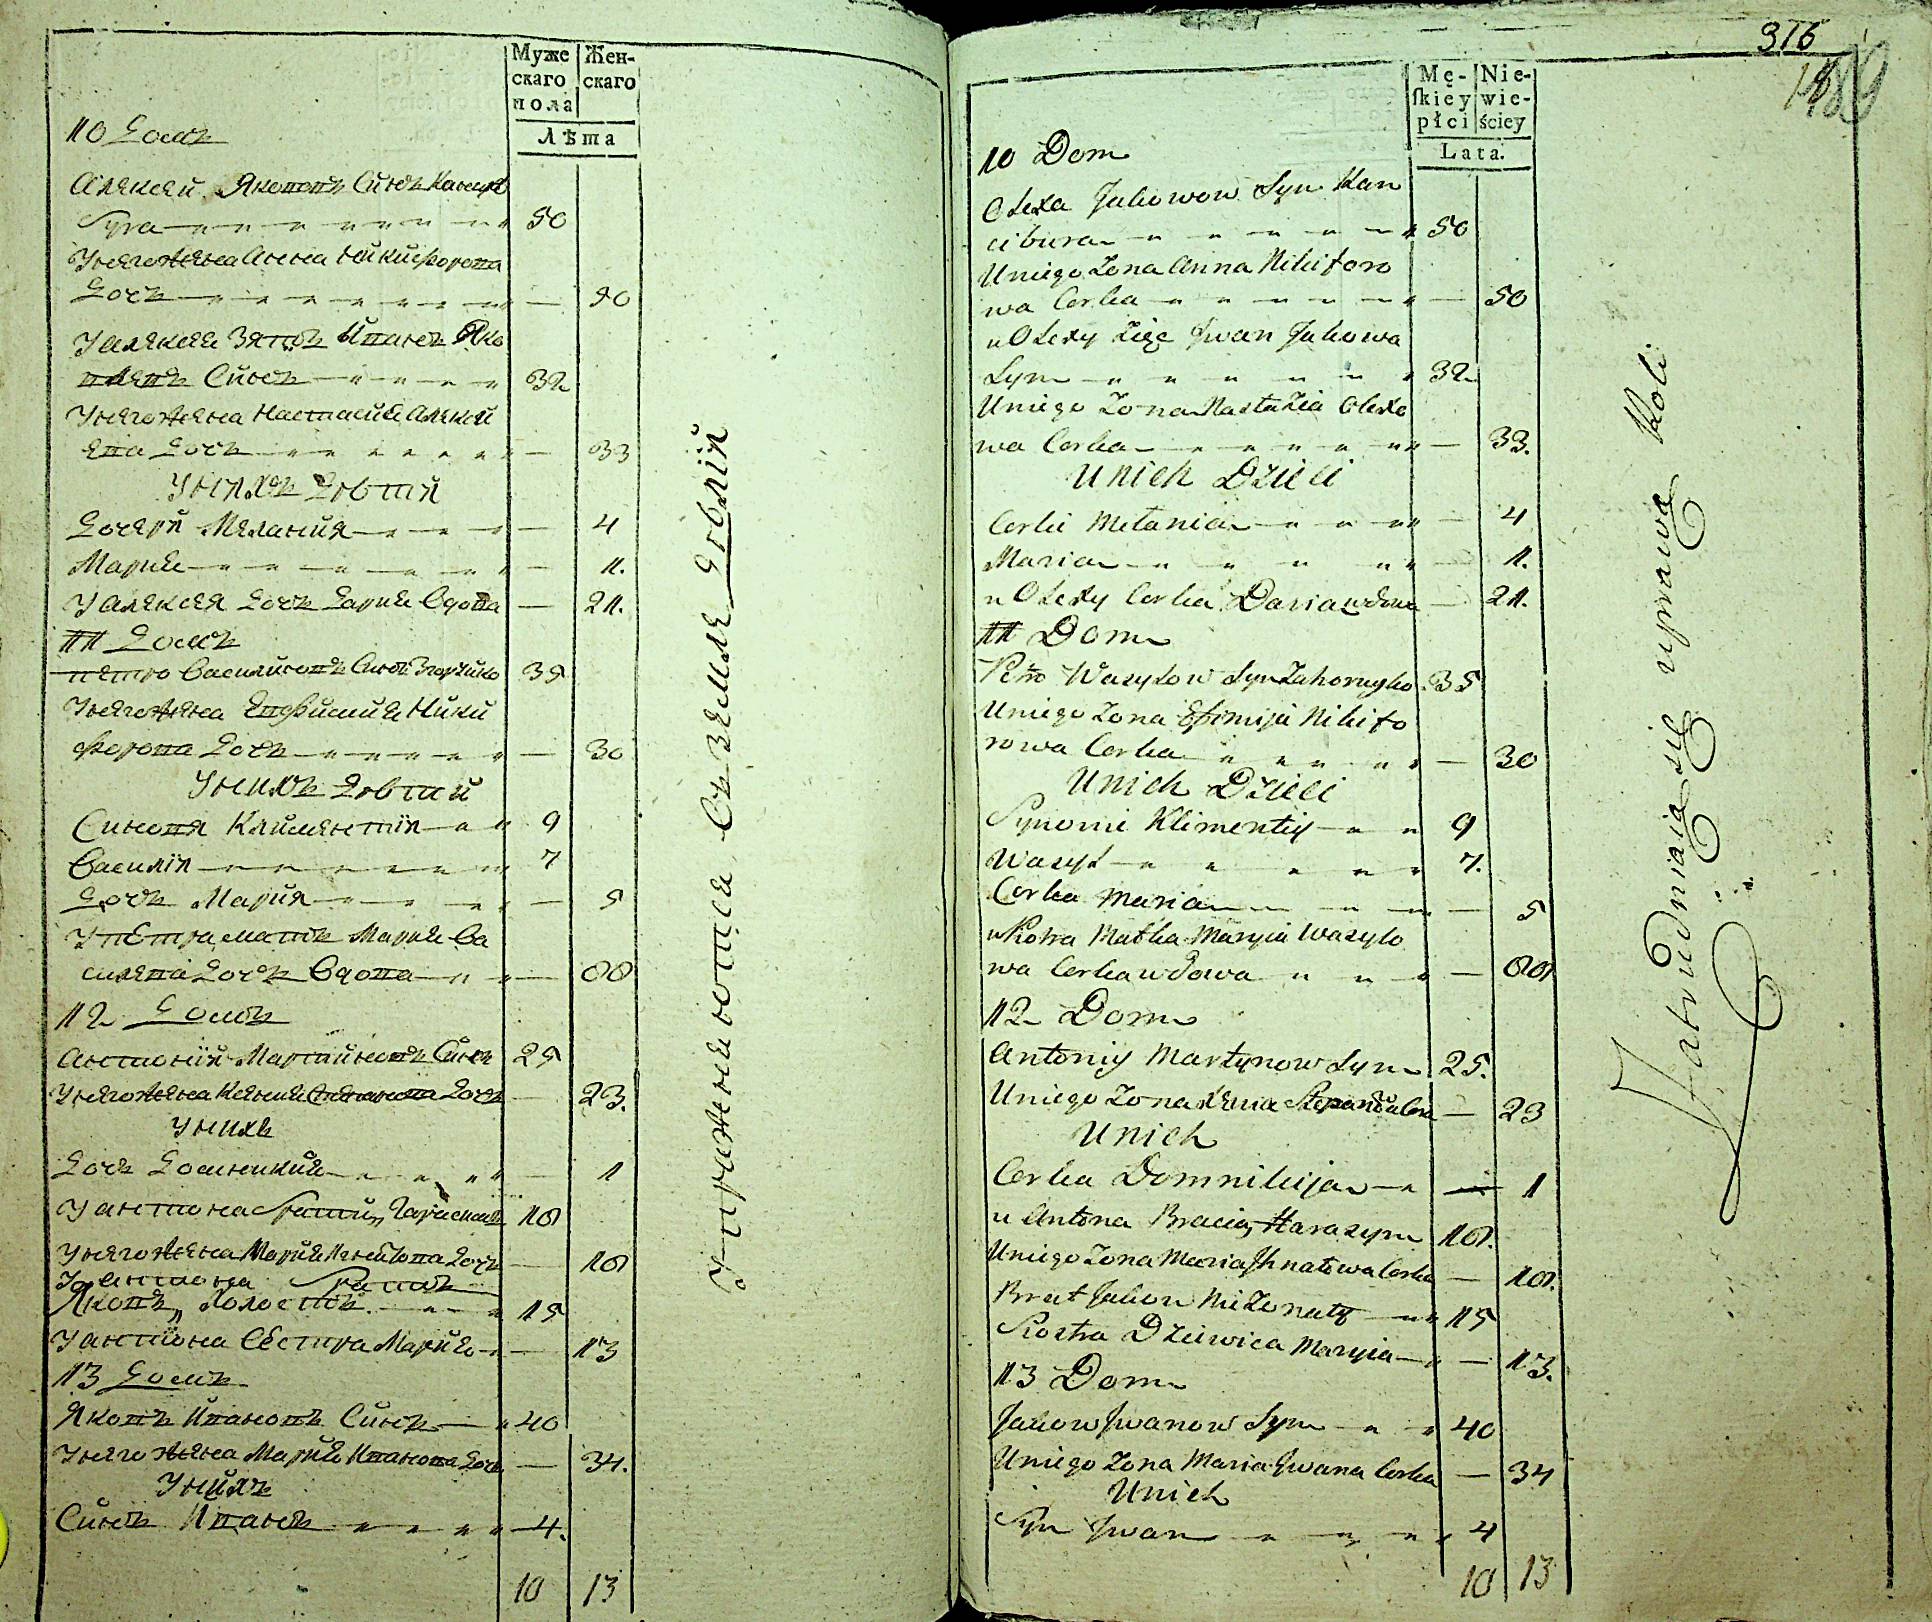 Муже
скаго
пола
Жен-
скаго
Лѣта
10 Домъ
Алексей Якововъ Синъ Канци
бура 50
Унего жена Анна Никифорова
Дочъ — 50
У Алексея Зять Иванъ Яко
влевъ Синъ 32
Унего жена Настасия Алексй
ева Дочъ — 33
Унихъ Дѣтий
Дочери Мелания — 4
Мария — 1.
У Алексея Дочъ Дария Вдова — 21.
11 Домъ
Петро Василиновъ Синъ 35
Унего жена Евфимия Ники
форова Дочъ — 30
Унихъ Дѣтий
Синовя Климентїя 9
Василїя 7
Дочъ Мария — 5
У Петра мать Мария Ва
силева Дочъ Вдова — 88
12 Домъ
Антонїй Мартиновъ Синъ 25
Унего жена Ксения Степанова Дочъ — 23.
Унихъ
Дочъ Домникия — 1
У антона Братъи, Гарасимъ 18
Унего жена Мария Игнатова Дочъ — 18
У антона Братъ
Яковъ, Холостъ 15
У антона Сестра Мария — 13
13 Домъ
Яковъ Ивановъ Синъ 40
Унего жена Мария Иванова Дочъ — 34.
Унихъ
Синъ Иванъ 4.
10 13
Упражняются Въ земле дѣлїи
316
189
Mę-
skiey
płci
Nie-
wie-
ściey
Lata.
10 Dom
Olexa Jakowow Syn Kan
cibura 50
Uniego Zona Anna Nikiforo
wa Corka — 50
u Olexy Zięc Jwan Jakowa
Syn 32
Uniego Zona Nastazia Olexo
wa Corka — 33.
Unich Dzieci
Corki Melania — 4
Maria — 1.
u Olexy Corka Daria wdowa — 21.
11 Dom
Petro Wasylow Syn Zahorujko 35
Uniego Zona Efimija Nikifo
rowa Corka — 30
Unich Dzieci
Synowie Klimentiy 9
Wasyl 7.
Corka Maria — 5
u Piotra Matka Maryia Wasylo
wa Corka wdowa — 88
12 Dom
Antoniy Martynow Syn 25.
Uniego Zona Xenia Stepanowa Corka — 23
Unich
Corka Domnikija — 1
u Antona Bracia, Harasym 18.
Uniego Zona Maria Jhnatowa Corka — 18.
Brat Jakow Nie Zonaty 15
Siostra Dziewica Maryia — 13.
13 Dom
Jakow Jwanow Syn 40
Uniego Zona Maria Jwana Corka — 34
Unich
Syn Jwan 4
10 13
Zatrudniaią się uprawą Roli